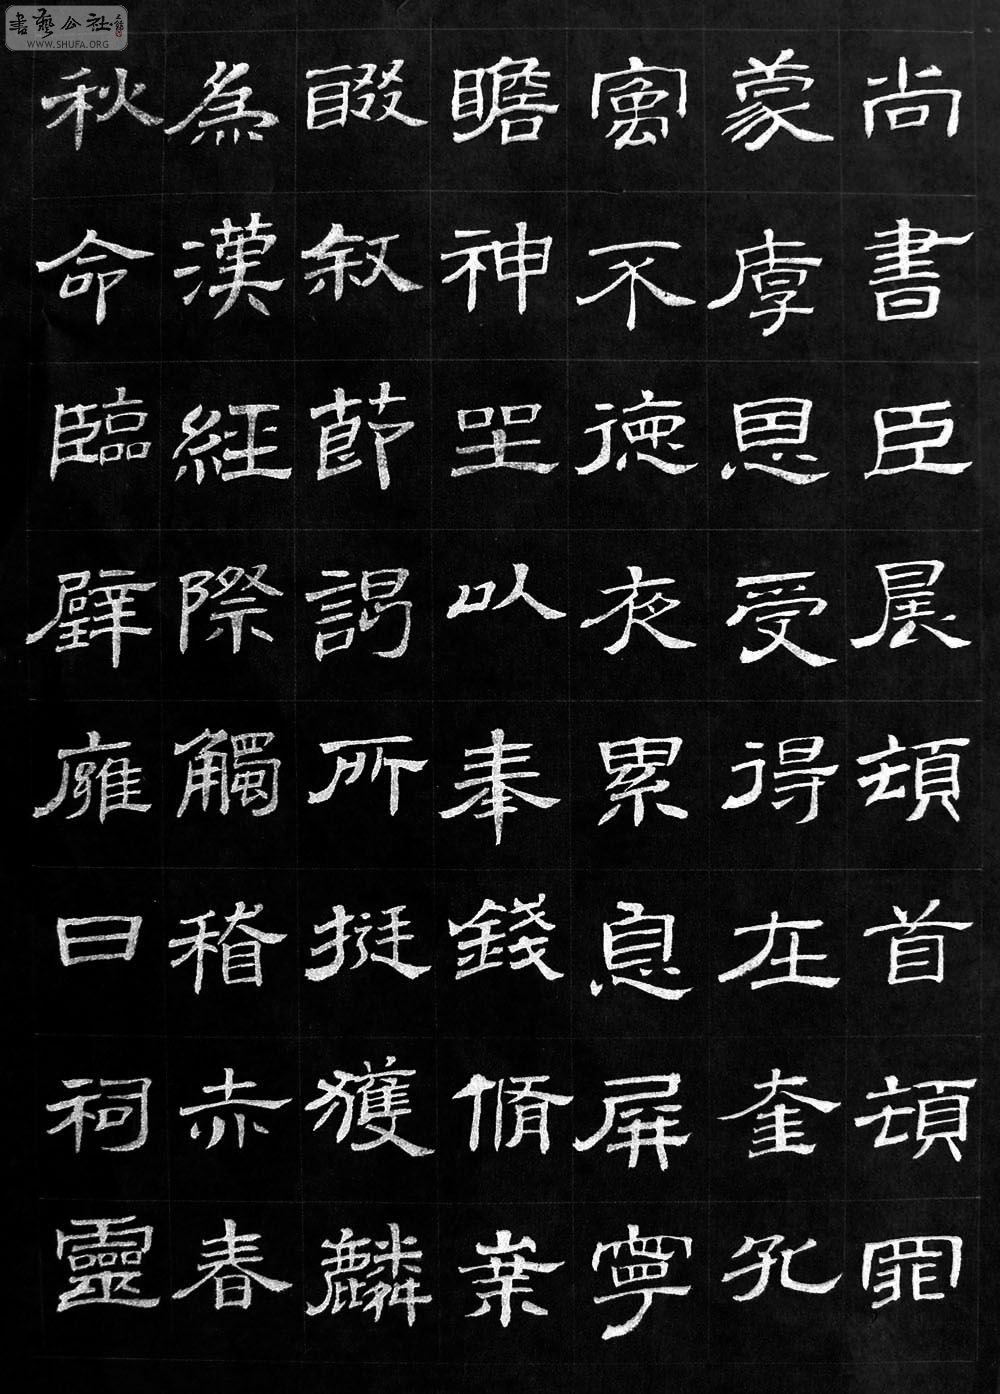 書藝公社
WWW.SHUFA.ORG
尚書臣晨頓首頓罪
蒙厚恩受得在奎孔
寓不德夜累息屏寧
瞻神坐以奉錢脩業
醊叙節謁所挺獲麟
為漢經際觸稽赤春
秋命臨辟廱日祠靈